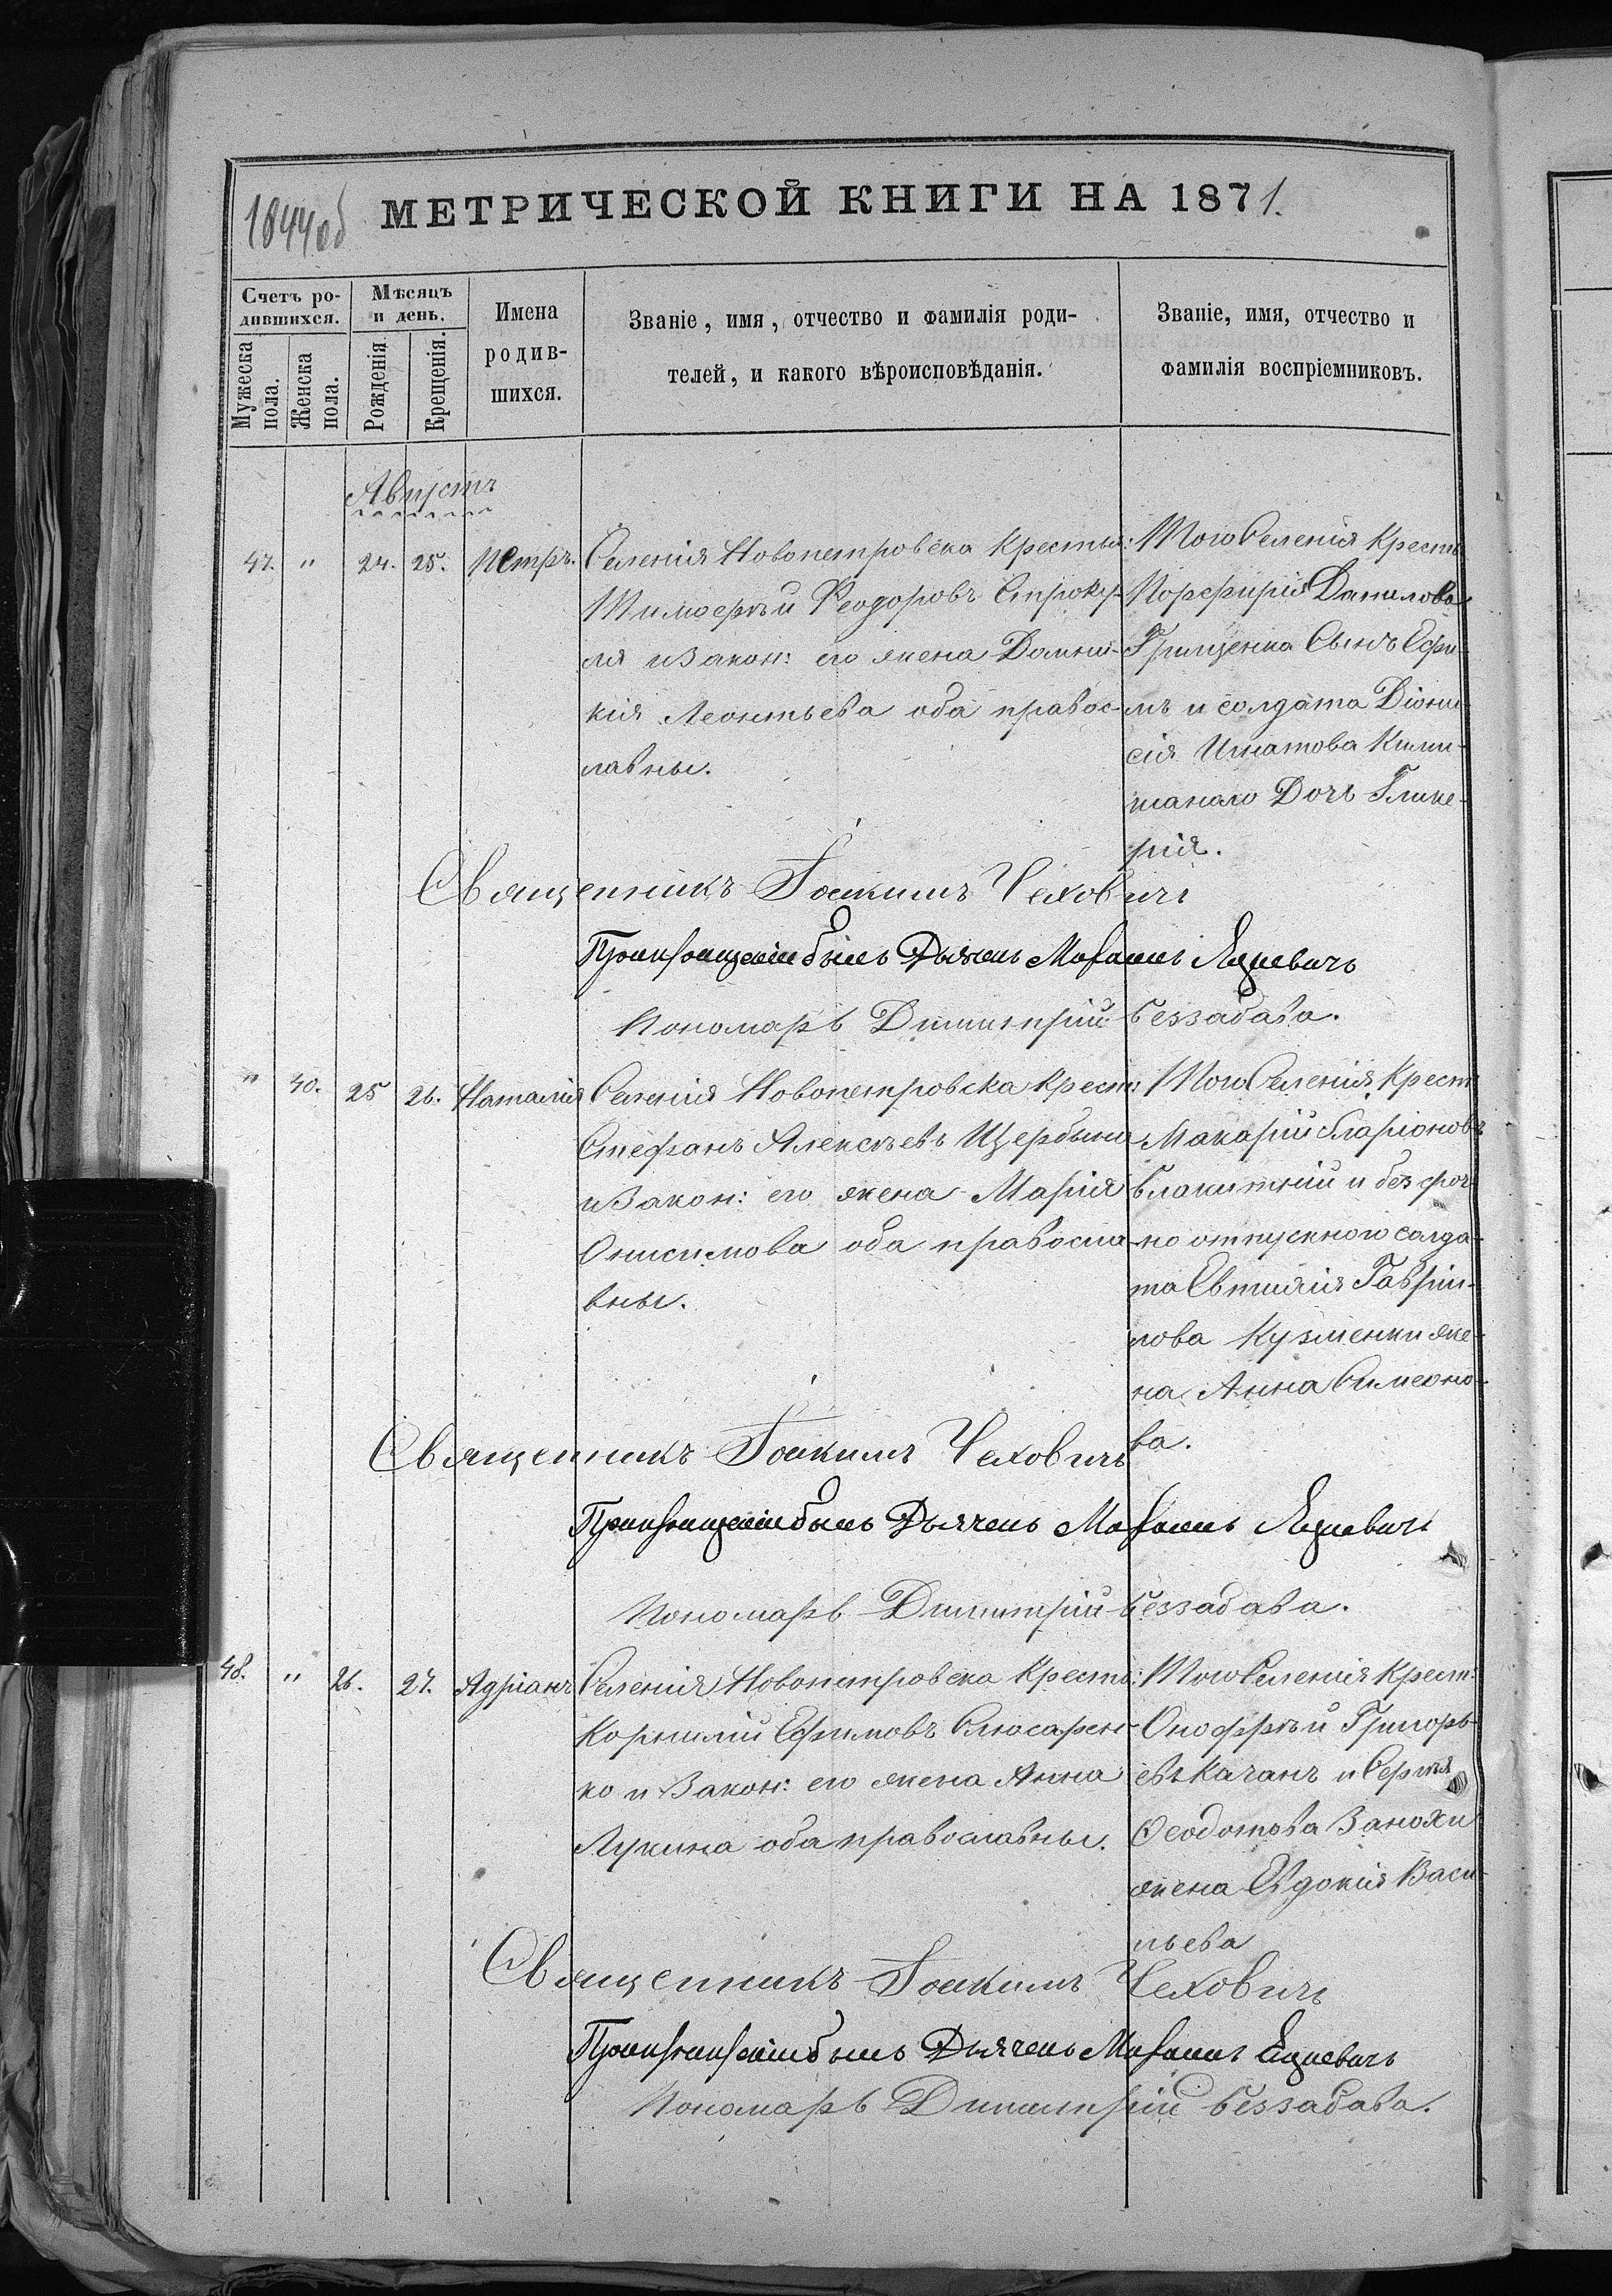 1844об
МЕТРИЧЕСКОЙ КНИГИ НА 1871.
Счетъ ро-
дившихся.
Мужеска пола.
Женска пола.
Мѣсяцъ
и день.
Рожденія.
Крещенія.
Имена
родив-
шихся.
Званіе, имя, отчество и фамилія роди-
телей, и какого вѣроисповѣданія.
Званіе, имя, отчество и
фамилія воспріемниковъ.
Августъ
47. " 24. 25. Петръ.
Селенія Новопетровска Крестья:
Тимофѣй Феодоровъ Строку-
ля и Закон: его жена Домни-
кія Леонтьева оба правос-
лавны.
Того Селенія Кресть
Порфирія Данилова
Грищенка Сынъ Ефи-
мъ и солдата Діони-
сія Игнатова
Дочь Глике-
рія.
Священникъ Іоакимъ Чеховичъ
При крещеніи былъ Дьячекъ
Пономарь Димитрій Беззабава.
" 40. 25 26. Наталія
Селенія Новопетровска Крест:
Стефанъ Алексѣевъ Щербина
и Закон: его жена Марія
Онисимова оба правосла-
вны.
Того Селенія Крест
Макарій Иларіоновъ
Блакитній и безсроч-
но отпускного солда-
та Евтихія Гаврии-
лова Кузменки же-
на Анна Симеоно-
ва.
Священникъ Іоакимъ Чеховичъ
При крещеніи былъ Дьячекъ
Пономарь Димитрій Беззабава.
48. " 26. 27. Адріанъ
Селенія Новопетровска Кресть:
Корнилій Ефимовъ Слюсарен-
ко и Закон: его жена Анна
Лукина оба православны.
Того Селенія Крест:
Онофрѣй Григорь-
евъ Качанъ и Сергѣя
Феодотова
жена Евдокія Васи-
льева
Священникъ Іоакимъ Чеховичъ
При крещеніи былъ Дьячекъ
Пономарь Димитрій Беззабава.